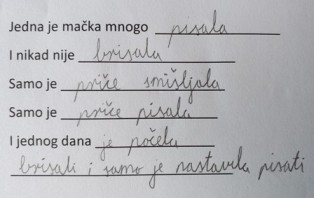 Jedna je mačka mnogo pisala
I nikad nije brisala
Samo je priče smišljala
Samo je priče pisala
I jednog dana je počela
brisati i samo je nastavila pisati